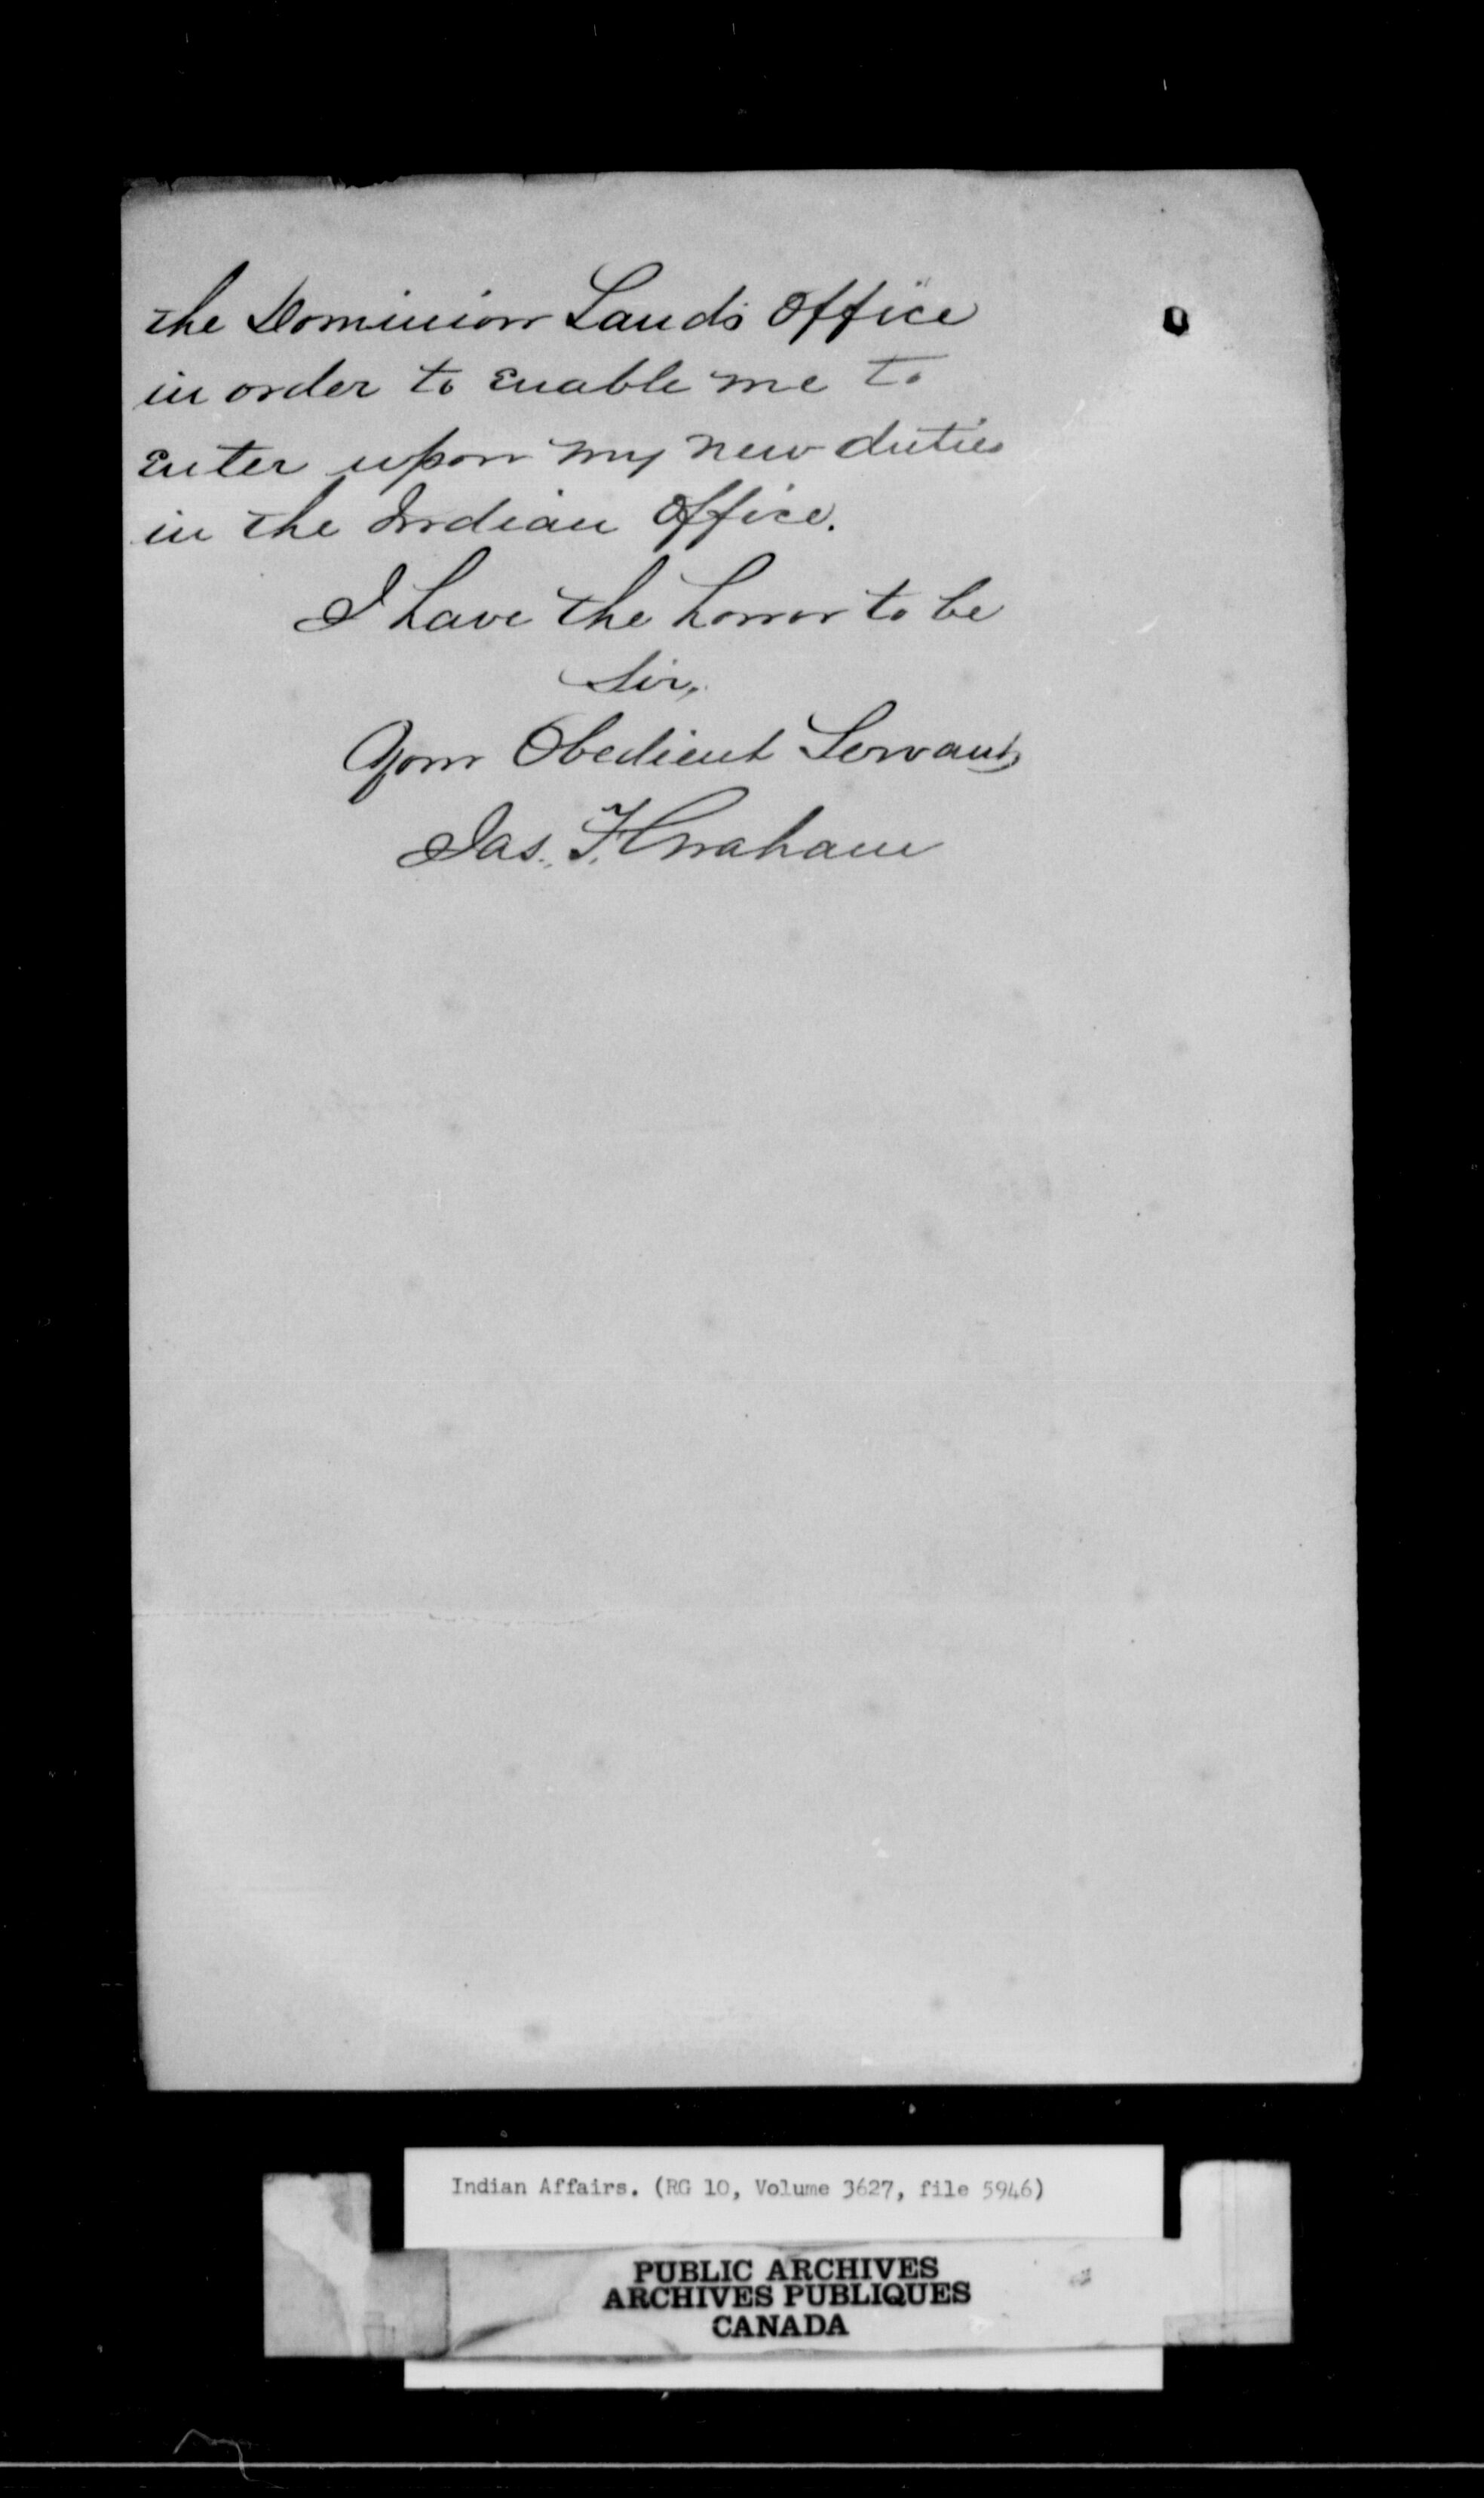 the Dominion Lands Office
in order to enable me to
enter upon my new duties
in the Indian Office.
I have the honor to be
Sir,
Your Obedient Servant,
Jas. F. Graham
Indian Affairs. (RG 10, Volume 3627, file 5946)
PUBLIC ARCHIVES
ARCHIVES PUBLIQUES
CANADA